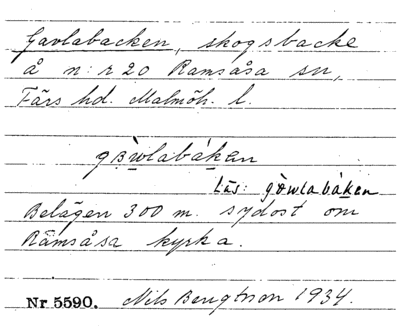 Gavlabacken, skogsbacke
å n:r 20 Ramsåsa sn,
Färs hd. Malmöh. l.
gɒ̀wlabákan
Läs: gɒ̀wlabàken
Belägen 300 m. sydost om
Ramsåsa kyrka.
Nr 5590. Nils Bengtson 1934.